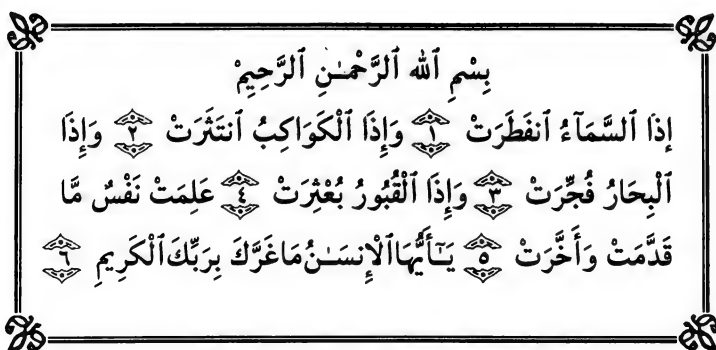 بِسْمِ ٱللهِ ٱلرَّحْمَـٰنِ ٱلرَّحِيمِ
إِذَا ٱلسَّمَآءُ ٱنفَطَرَتْ ١ وَإِذَا ٱلْكَوَاكِبُ ٱنتَثَرَتْ ٢ وَإِذَا
ٱلْبِحَارُ فُجِّرَتْ ٣ وَإِذَا ٱلْقُبُورُ بُعْثِرَتْ ٤ عَلِمَتْ نَفْسٌ مَّا
قَدَّمَتْ وَأَخَّرَتْ ٥ يَـٰٓأَيُّهَا ٱلْإِنسَـٰنُ مَا غَرَّكَ بِرَبِّكَ ٱلْكَرِيمِ ٦